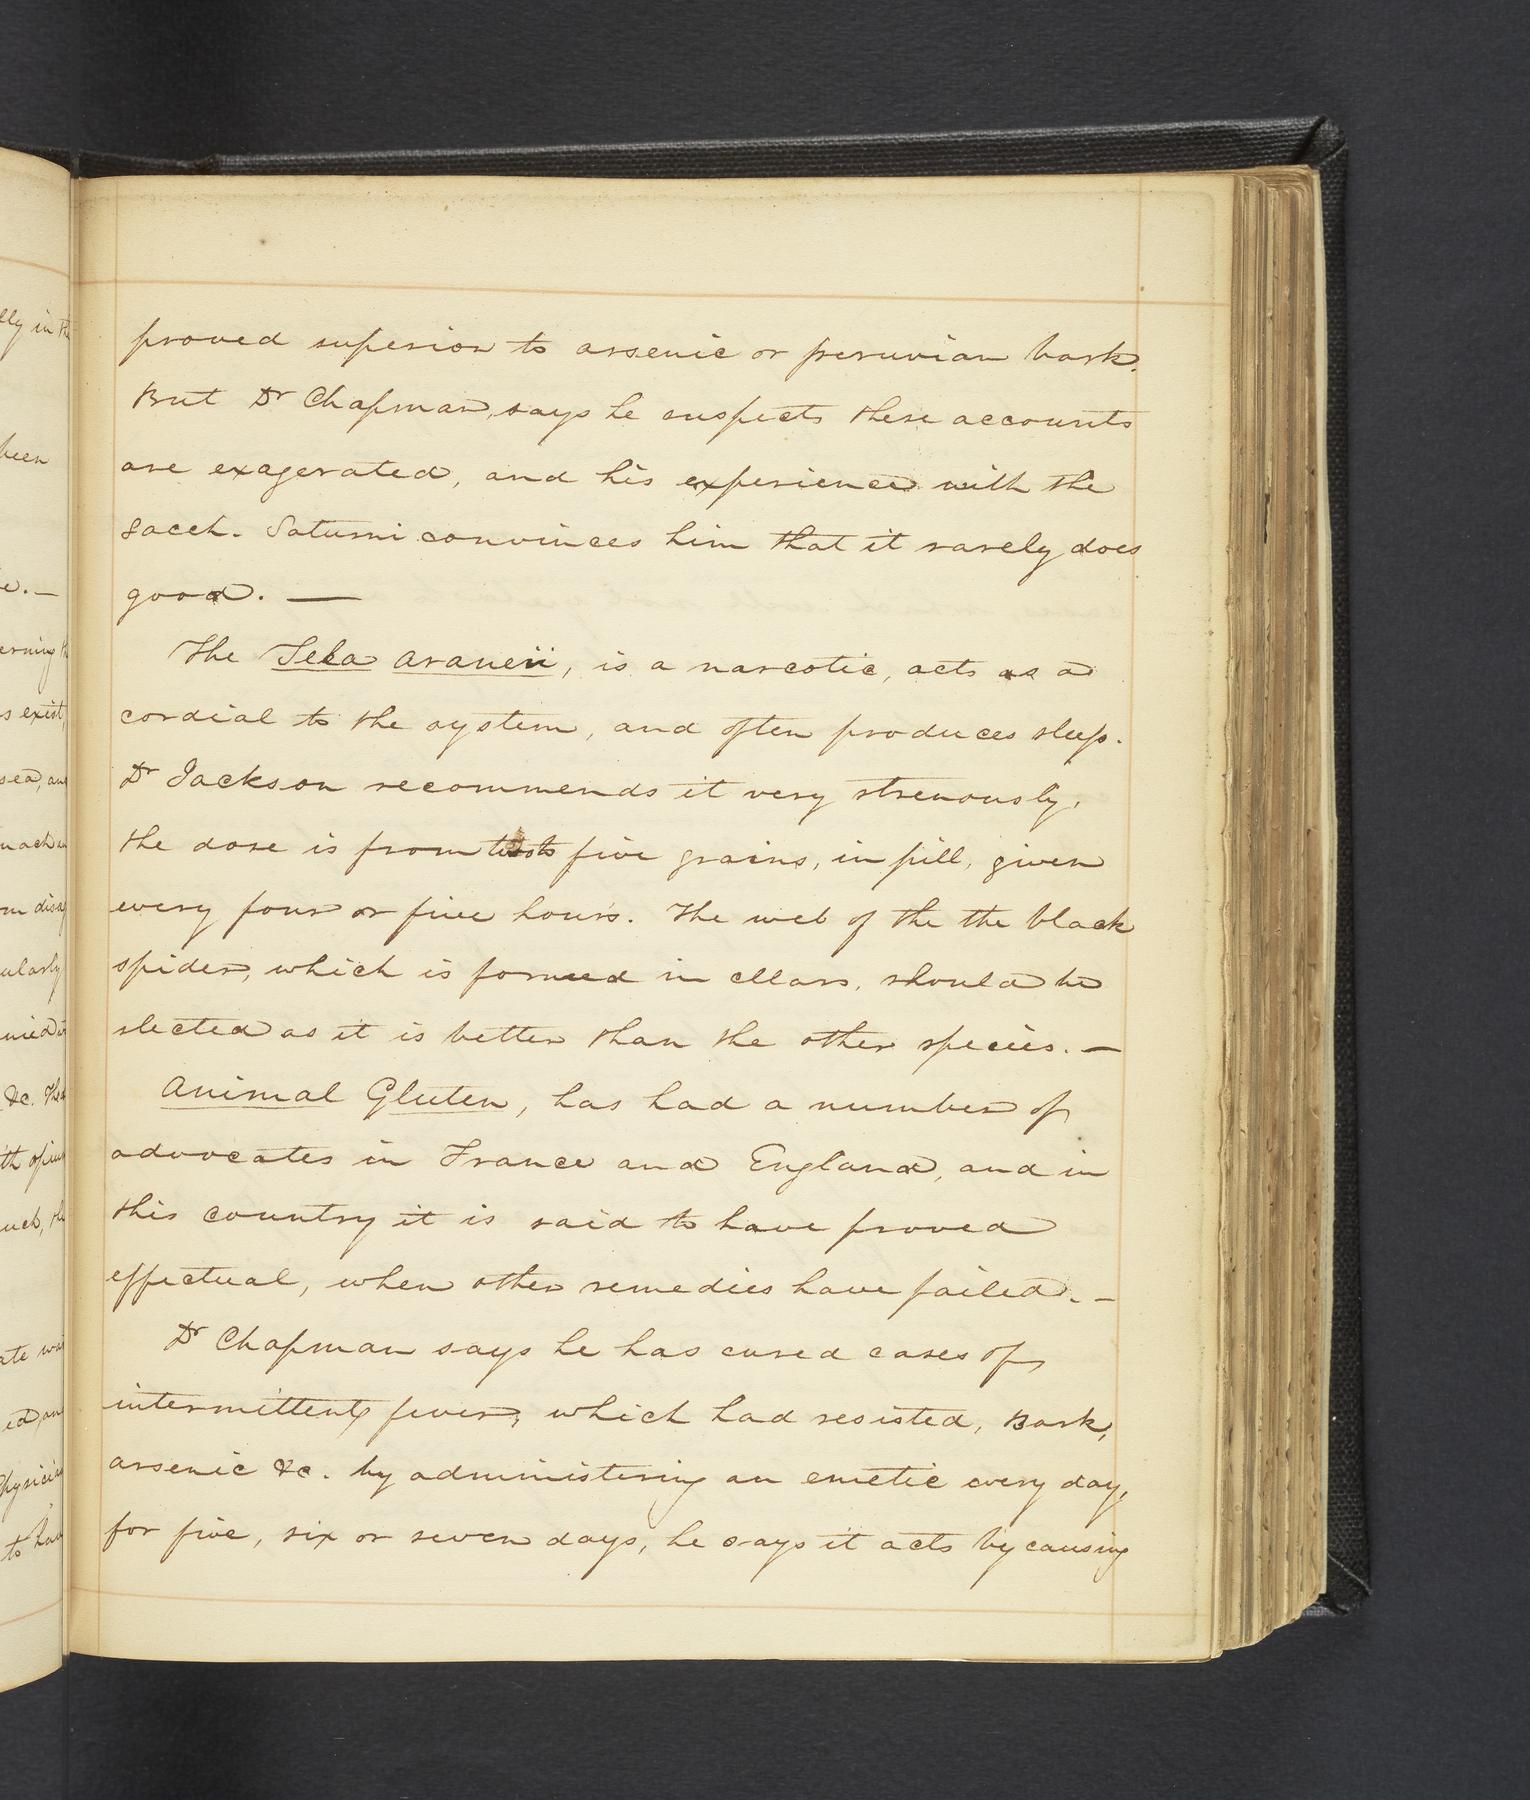 proved superior to arsenic or peruvian bark.
But Dr Chapman, says he suspects these accounts
are exagerated, and his experience with the
sacch. Saturni convinces him that it rarely does
good. —
The Tela araneii, is a narcotic, acts as a
cordial to the system, and often produces sleep.
Dr Jackson recommends it very strenously,
the dose is from to five grains, in pill, given
every four or five hours. The web of the the black
spider, which is formed in cellars, should be
slected as it is better than the other species. —
Animal Gluten, has had a number of
advocates in France and England, and in
this country it is said to have proved
effectual, when other remedies have failed. —
Dr Chapman says he has cured cases of
intermittent fever, which had resisted, Bark,
arsenic &c. by administering an emetic every day,
for five, six or seven days, he says it acts by causing